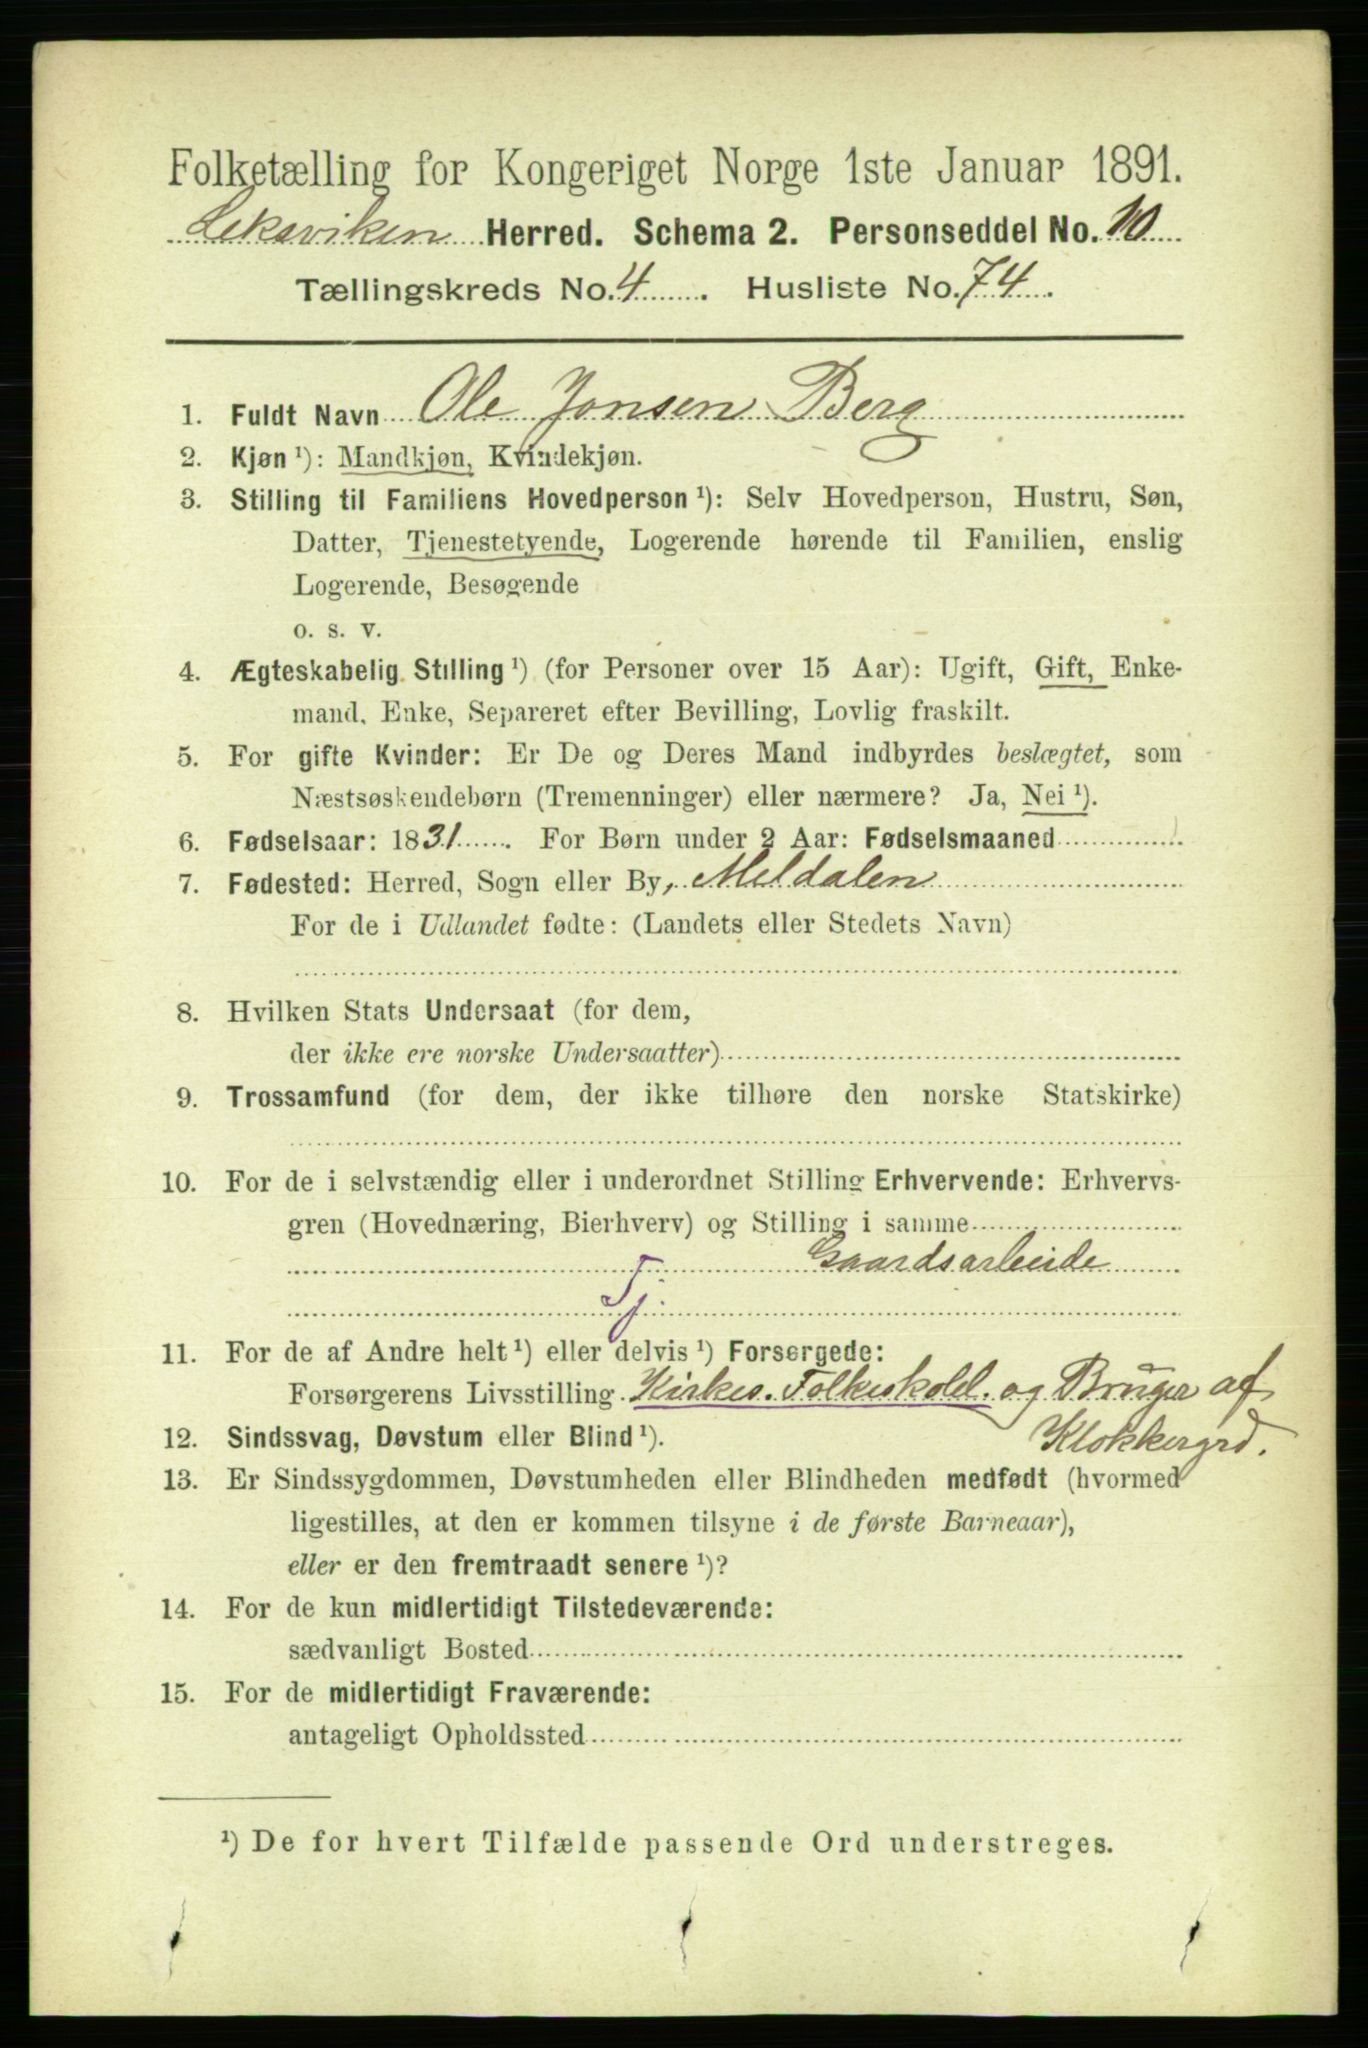 Folketælling for Kongeriget Norge 1ste Januar 1891.
Leksviken Herred. Schema 2. Personseddel No. 10
Tællingskreds No. 4. Husliste No. 74.
1. Fuldt Navn Ole Jonsen Berg
2. Kjøn ¹): Mandkjøn, Kvindekjøn.
3. Stilling til Familiens Hovedperson ¹): Selv Hovedperson, Hustru, Søn,
Datter, Tjenestetyende, Logerende hørende til Familien, enslig
Logerende, Besøgende
o. s. v.
4. Ægteskabelig Stilling ¹) (for Personer over 15 Aar): Ugift, Gift, Enke-
mand, Enke, Separeret efter Bevilling, Lovlig fraskilt.
5. For gifte Kvinder: Er De og Deres Mand indbyrdes beslægtet, som
Næstsøskendebørn (Tremenninger) eller nærmere? Ja, Nei ¹).
6. Fødselsaar: 1831. For Børn under 2 Aar: Fødselsmaaned
7. Fødested: Herred, Sogn eller By, Meldalen
For de i Udlandet fødte: (Landets eller Stedets Navn)
8. Hvilken Stats Undersaat (for dem,
der ikke ere norske Undersaatter)
9. Trossamfund (for dem, der ikke tilhøre den norske Statskirke)
10. For de i selvstændig eller i underordnet Stilling Erhvervende: Erhvervs-
gren (Hovednæring, Bierhverv) og Stilling i samme
Gaardsarbeide
Tj.
11. For de af Andre helt ¹) eller delvis ¹) Forsørgede:
Forsørgerens Livsstilling. Kirkes. Folkeskolel. og Bruger af
Klokkergrd.
12. Sindssvag, Døvstum eller Blind ¹).
13. Er Sindssygdommen, Døvstumheden eller Blindheden medfødt (hvormed
ligestilles, at den er kommen tilsyne i de første Barneaar),
eller er den fremtraadt senere ¹)?
14. For de kun midlertidigt Tilstedeværende:
sædvanligt Bosted
15. For de midlertidigt Fraværende:
antageligt Opholdssted
¹) De for hvert Tilfælde passende Ord understreges.